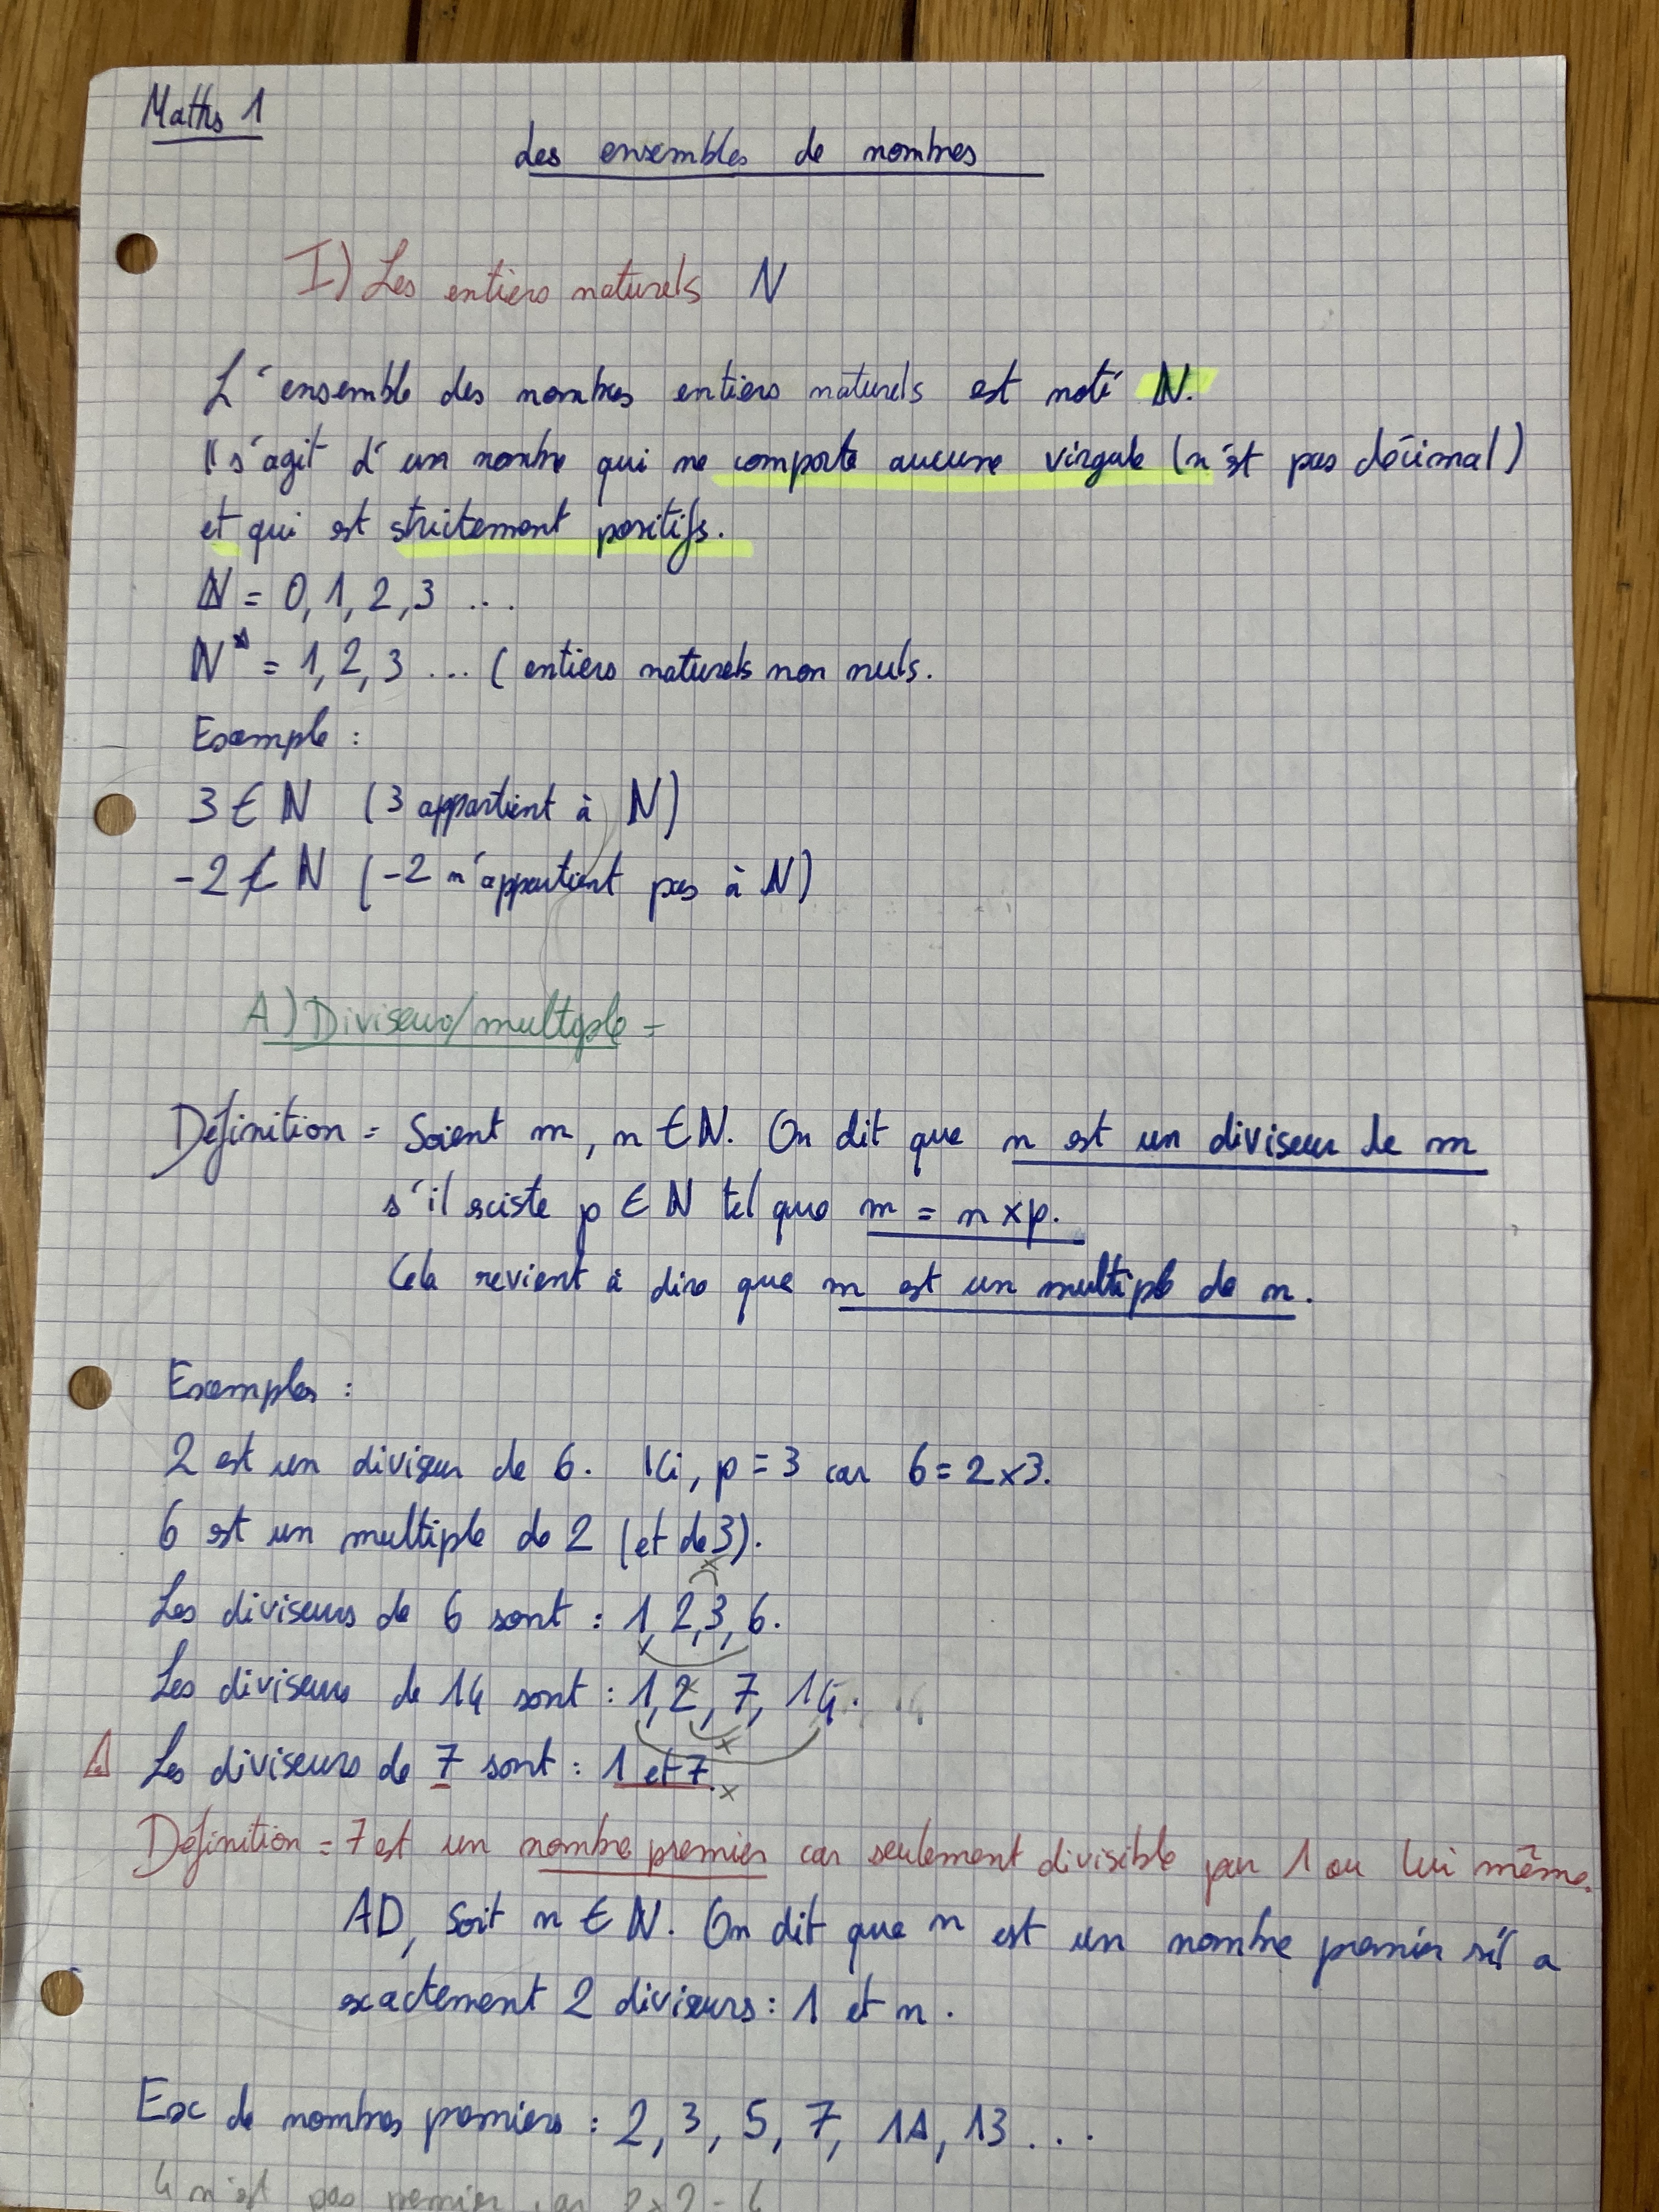 Maths 1
Les ensembles de nombres
I) Les entiers naturels N
L'ensemble des nombres entiers naturels est noté ℕ.
Il s'agit d'un nombre qui ne comporte aucune virgule (n'est pas décimal)
et qui est strictement positifs.
ℕ = 0, 1, 2, 3 ...
ℕ* = 1, 2, 3 ... ( entiers naturels non nuls.
Exemple :
3 ∈ ℕ (3 appartient à ℕ)
-2 ∉ ℕ (-2 n'appartient pas à ℕ)
A) Diviseur/multiple =
Définition = Soient m, n ∈ ℕ. On dit que n est un diviseur de m
s'il existe p ∈ ℕ tel que m = n × p.
Cela revient à dire que m est un multiple de n.
Exemples :
2 est un diviseur de 6. Ici, p = 3 car 6 = 2 × 3.
6 est un multiple de 2 (et de 3).
×
Les diviseurs de 6 sont : 1, 2, 3, 6.
Les diviseurs de 14 sont : 1, 2, 7, 14.
×
⚠ Les diviseurs de 7 sont : 1 et 7.
×
Définition = 7 est un nombre premier car seulement divisible par 1 ou lui même.
AD, Soit n ∈ ℕ. On dit que n est un nombre premier s'il a
exactement 2 diviseurs : 1 et n.
Ex de nombres premiers : 2, 3, 5, 7, 11, 13 ...
4 n'est pas premier car 2 × 2 = 4